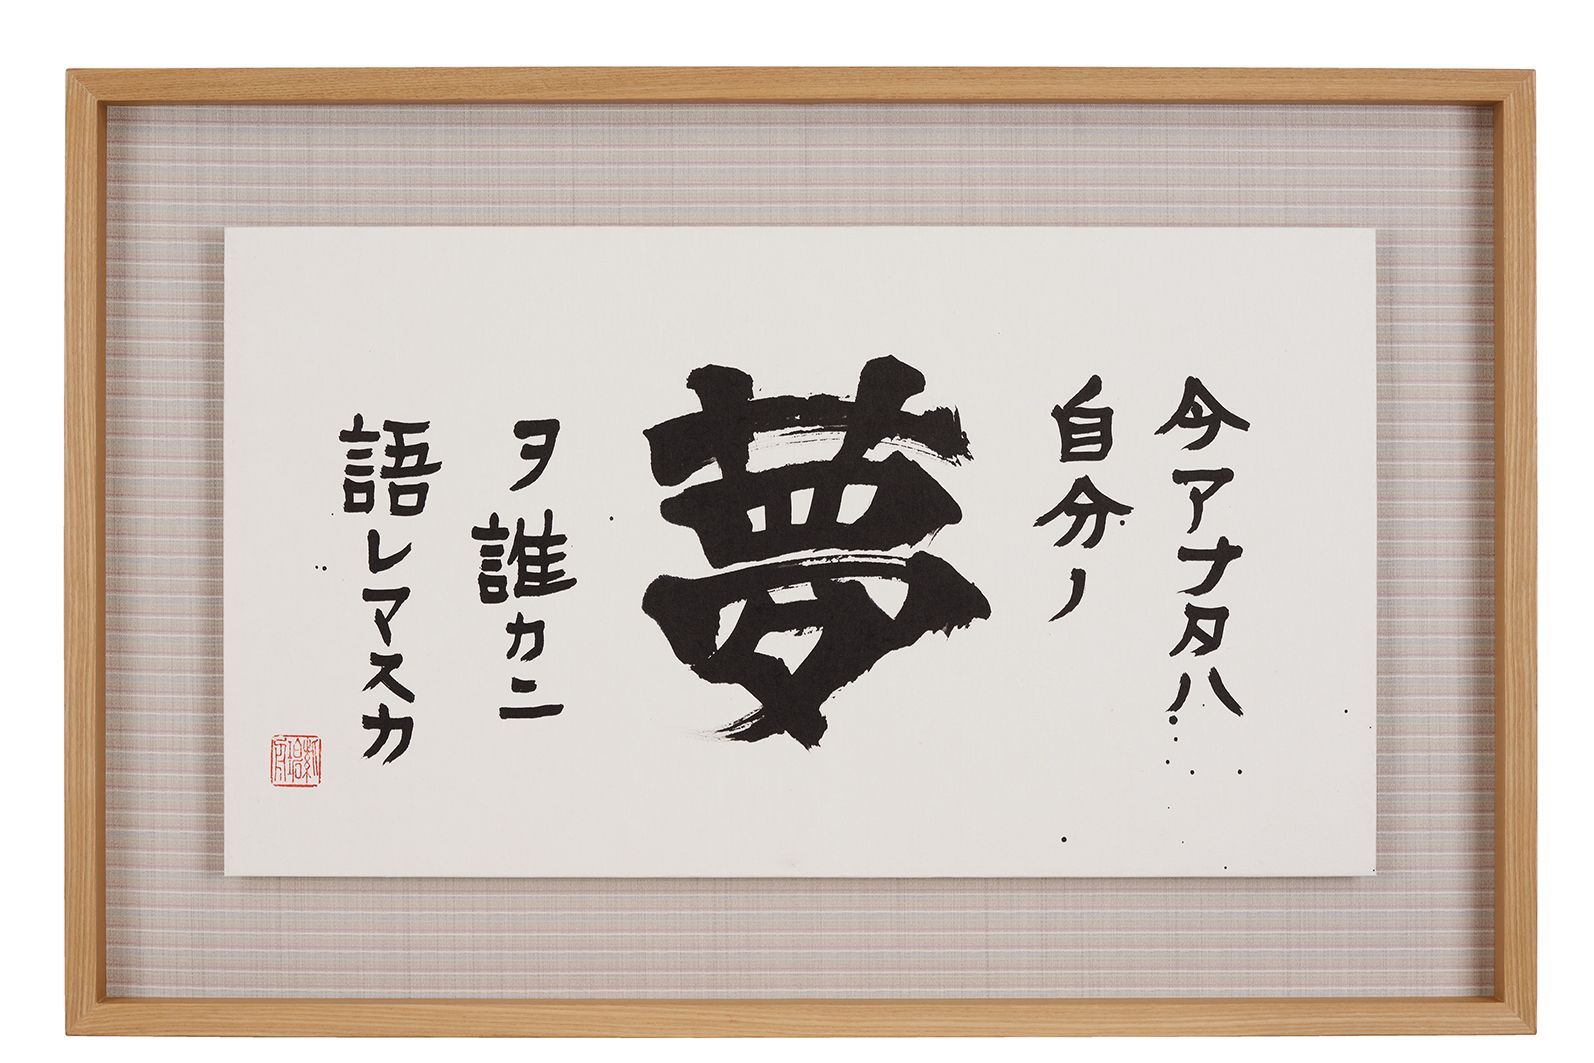 今アナタハ
自分ノ
夢
ヲ誰カニ
語レマスカ